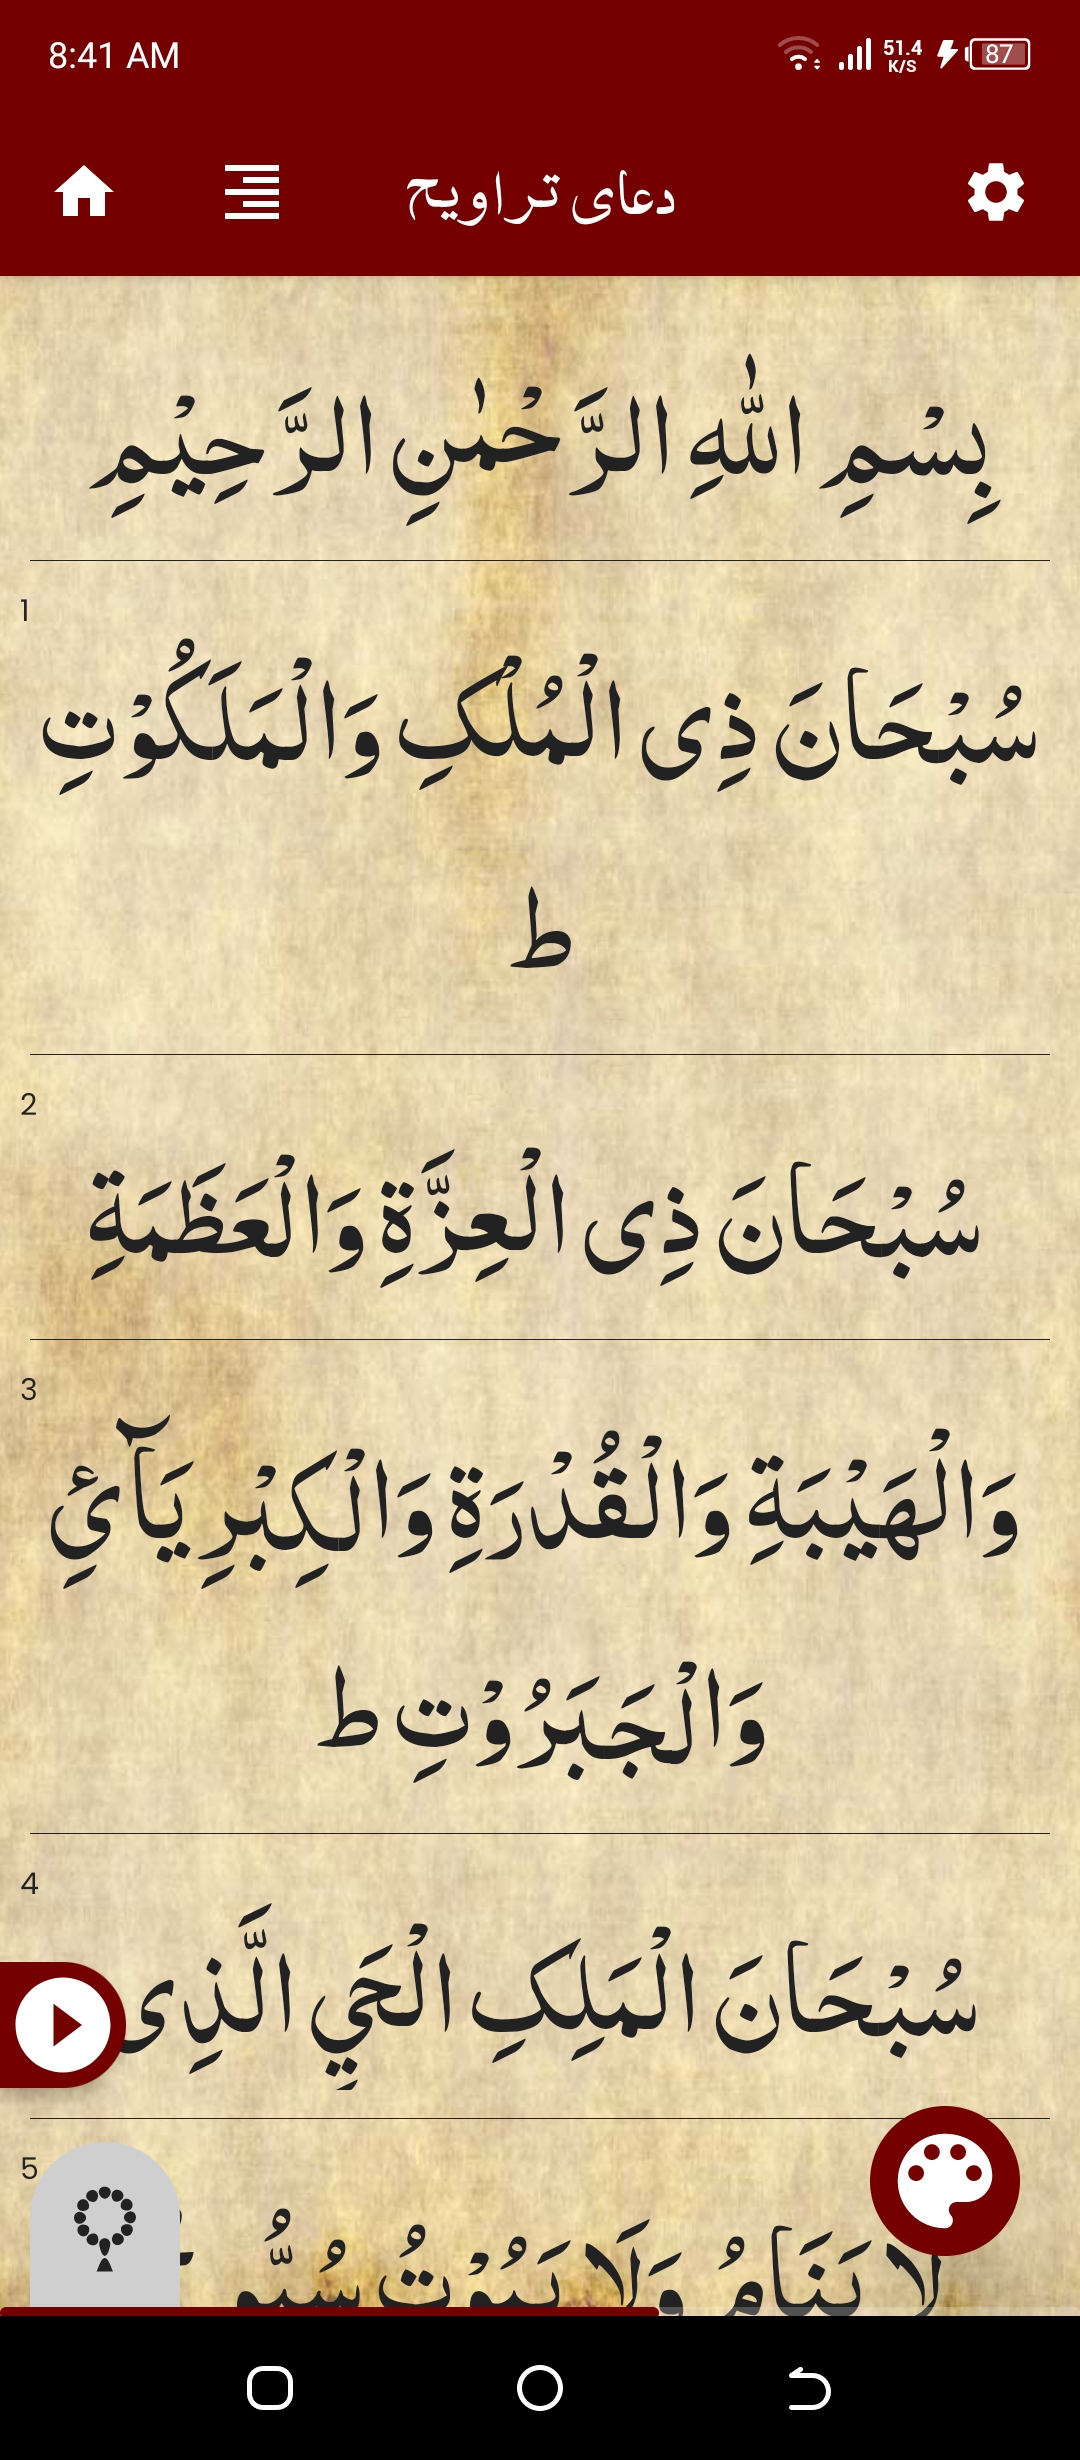 8:41 AM
51.4
K/S
87
دعای تراویح
بِسْمِ اللّٰهِ الرَّحْمٰنِ الرَّحِيْمِ
1
سُبْحَانَ ذِی الْمُلْکِ وَالْمَلَکُوْتِ
ط
2
سُبْحَانَ ذِی الْعِزَّةِ وَالْعَظَمَةِ
3
وَالْهَيْبَةِ وَالْقُدْرَةِ وَالْکِبْرِيَآئِ
وَالْجَبَرُوْتِ ط
4
سُبْحَانَ الْمَلِکِ الْحَيِ الَّذِی
5
لَا يَنَامُ وَلَا يَمُوْتُ